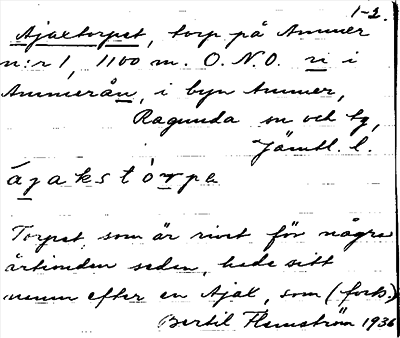 1-2.
Ajaxtorpet, torp på Ammer
n:r 1, 1100 m. O.N.O. vi i
Ammerån, i byn Ammer,
Ragunda sn och tg,
Jämtl. l.
ájakstòrpe
Torpet, som är rivet för några
årtionden seden, hade sitt
namn efter en Ajax, som (forts.)
Bertil Flemström 1936